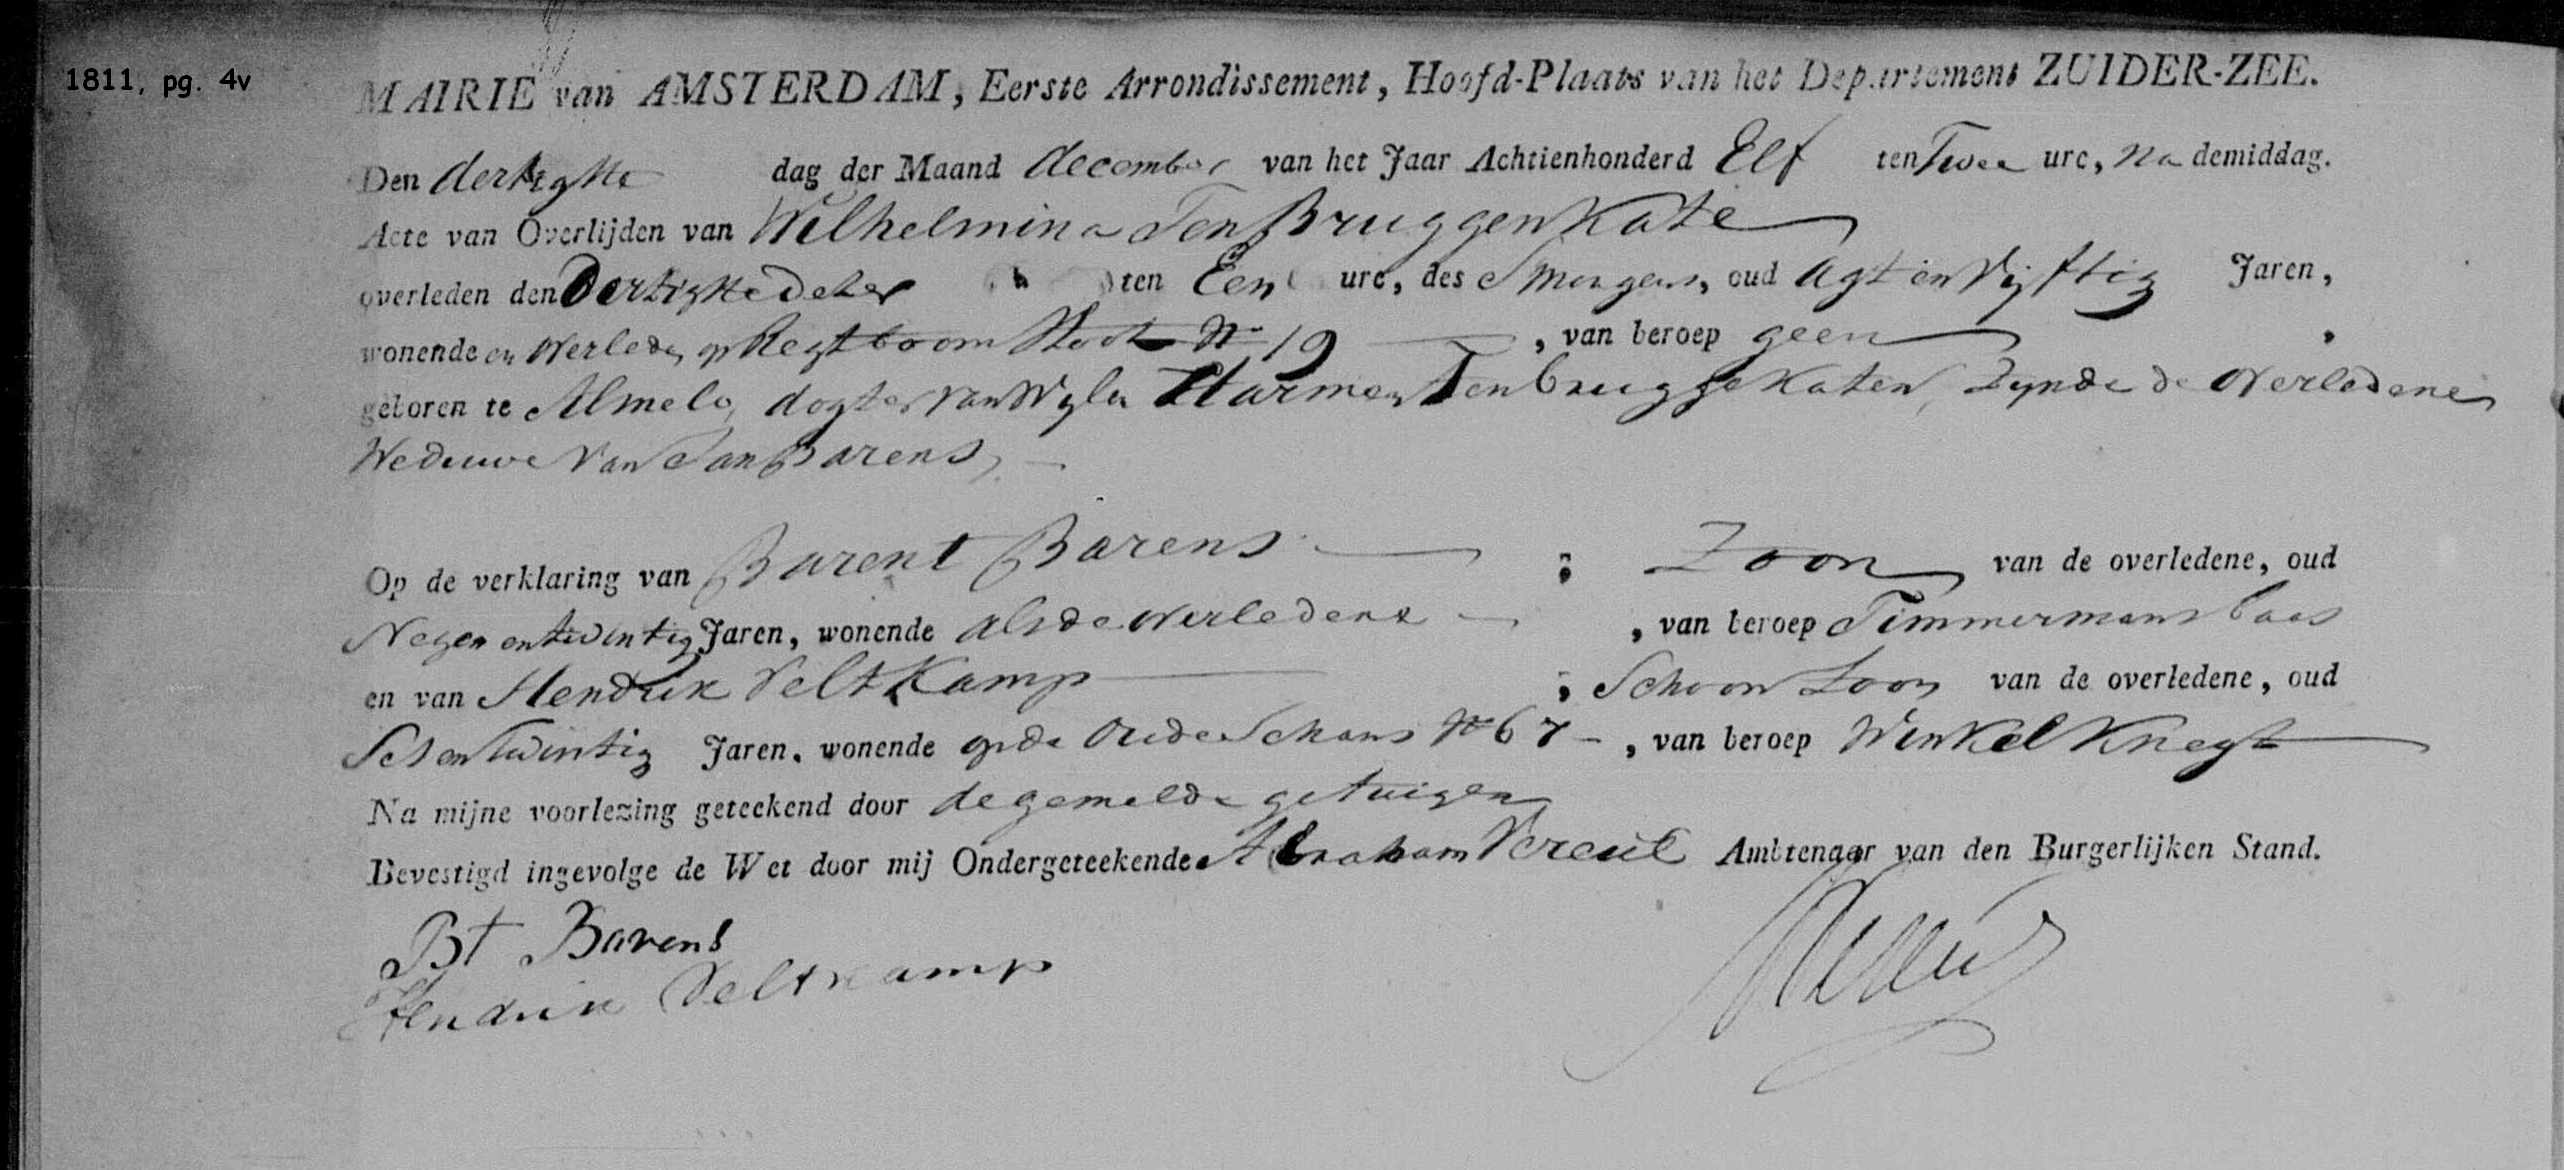 1811, pg. 4v
MAIRIE van AMSTERDAM, Eerste Arrondissement, Hoofd-Plaats van het Departement ZUIDER-ZEE.
Den dertigste dag der Maand december van het Jaar Achtienhonderd Elf ten Twee ure, na demiddag.
Acte van Overlijden van Wilhelmina Ten Bruggen Kate
overleden den Dertigste deser ten Een ure, des Smorgens, oud Agt en Vijftig Jaren,
wonende en overleden op Regtboom Sloot No 19, van beroep geen
geboren te Almelo, dogter van Wylen Harmen Ten brugge Katen, Zynde de overledene
Weduwe Van Jan Barens,
Op de verklaring van Barent Barens ; Zoon van de overledene, oud
Negen en twintig Jaren, wonende als de overledene, van beroep Timmermans baas
en van Hendrik Veltkamp ; Schoon Zoon van de overledene, oud
Ses en Twintig Jaren, wonende op de Oude Schans No 67 -, van beroep Winkel Knegt
Na mijne voorlezing geteekend door de gemelde getuigen
Bevestigd ingevolge de Wet door mij Ondergeteekende Abraham Vereul Ambtenaar van den Burgerlijken Stand.
Bt Barens
Hendrik Veltkamp